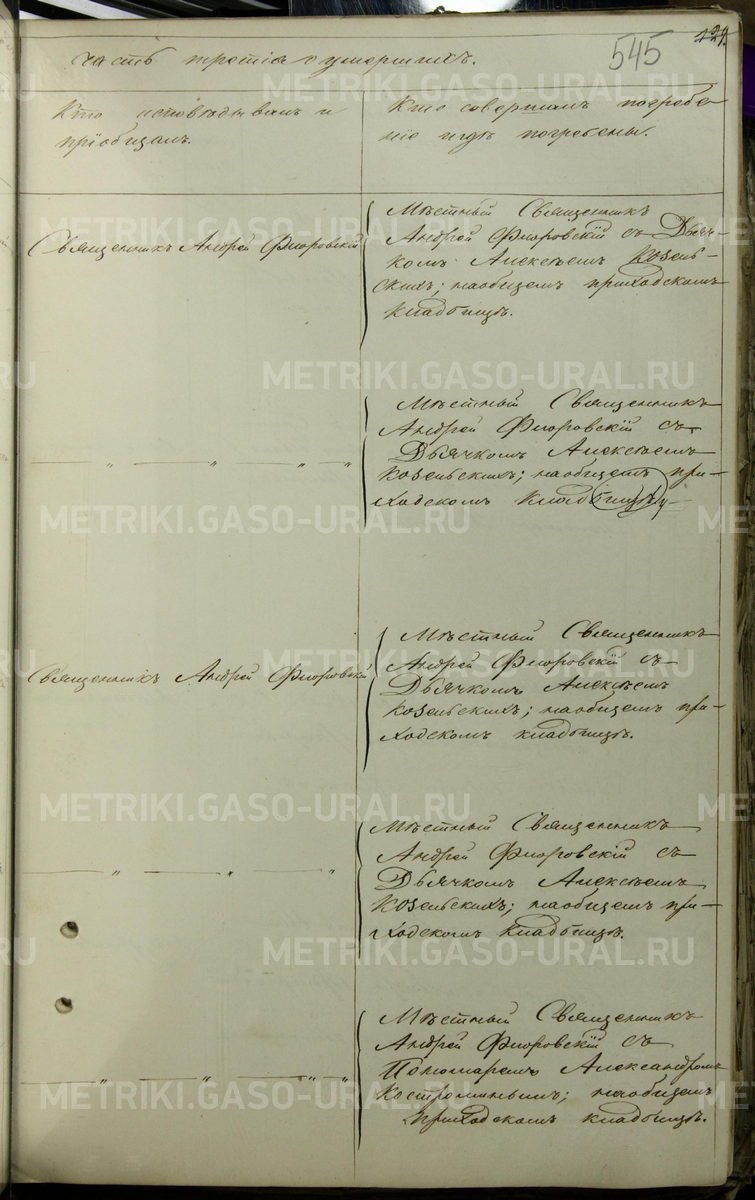 545
124.
часть третія о умершихъ.
Кто исповѣдывалъ и
пріобщалъ.
Кто совершалъ погребе
ніе и гдѣ погребены.
Священникъ Андрей Флоровскій
Мѣстный Священникъ
Андрей Флоровскій съ Дьяч-
комъ Алексѣемъ Козель-
скихъ; на общемъ приходскомъ
кладбищѣ.
— „ — „ — „ „
Мѣстный Священникъ
Андрей Флоровскій съ
Дьячкомъ Алексѣемъ
Козельскихъ; на общемъ при-
ходскомъ кладбищѣ.
Священникъ Андрей Флоровскій
Мѣстный Священникъ
Андрей Флоровскій съ
Дьячкомъ Алексѣемъ
Козельскихъ; на общемъ при-
ходскомъ кладбищѣ.
— „ — „ — „
Мѣстный Священникъ
Андрей Флоровскій съ
Дьячкомъ Алексѣемъ
Козельскихъ; на общемъ при-
ходскомъ кладбищѣ.
— „ — „ — „ „
Мѣстный Священникъ
Андрей Флоровскій съ
Пономаремъ Александромъ
Костроминымъ; на общемъ
приходскомъ кладбищѣ.
METRIKI.GASO-URAL.RU